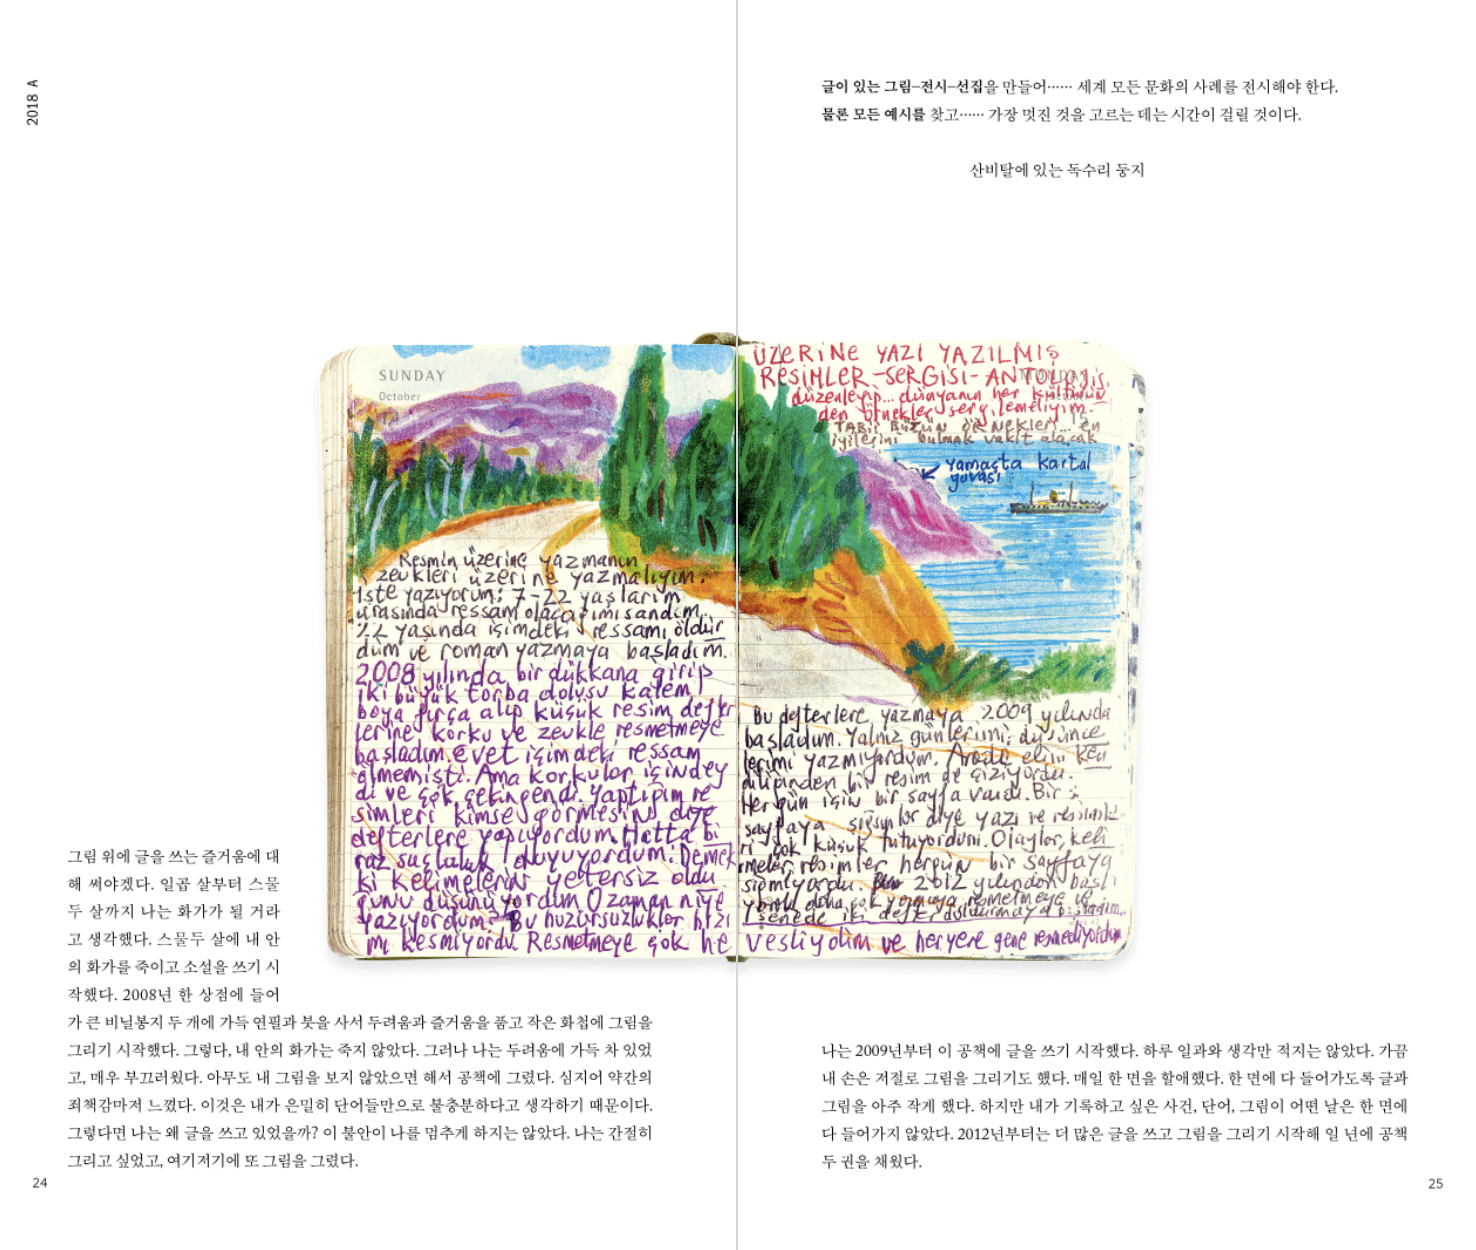 2018 A
글이 있는 그림–전시–선집을 만들어…… 세계 모든 문화의 사례를 전시해야 한다.
물론 모든 예시를 찾고…… 가장 멋진 것을 고르는 데는 시간이 걸릴 것이다.
산비탈에 있는 독수리 둥지
SUNDAY
October
Resmin üzerine yazmanın
zevkleri üzerine yazmalıyım.
İşte yazıyorum: 7-22 yaşlarım
arasında ressam olacağımı sandım.
22 yaşında içimdeki ressamı öldür
düm ve roman yazmaya başladım.
2008 yılında bir dükkana girip
iki büyük torba dolusu kalem
boya fırça alıp küçük resim defter
lerine korku ve zevkle resmetmeye
başladım. Evet içimdeki ressam
ölmemişti. Ama korkular içindey
di ve çok çekingendi. Yaptığım re
simleri kimse görmesin diye
defterlere yapıyordum. Hatta bi
raz suçluluk duyuyordum. Demek
ki kelimelerin yetersiz oldu
ğunu düşünüyordum O zaman niye
yazıyordum? Bu huzursuzluklar hızı
mı kesmiyordu Resmetmeye çok he
ÜZERİNE YAZI YAZILMIŞ
RESİMLER-SERGİSİ-ANTOLOJİSİ
düzenleyip... dünyanın her kültürün
den örnekler sergilemeliyim.
TABİİ BÜTÜN ÖRNEKLERİ... en
iyilerini bulmak vakit alacak
yamaçta kartal
yuvası
15
16
17
Bu defterlere yazmaya 2009 yılında
başladım. Yalnız günlerimi, düşünce
lerimi yazmıyordum. Arada elim ken
diliğinden bir resim de çiziyordu.
Her gün için bir sayfa vardı. Bir
sayfaya sığsınlar diye yazı ve resimle
ri çok küçük tutuyordum. Olaylar, keli
meler, resimler hergün bir sayfaya
sığmıyordu. 2012 yılından başlı
yarak daha çok yazmaya resmetmeye ve
1 senede iki defter doldurmaya başladım.
vesliydim ve heryere gene resmediyordum
그림 위에 글을 쓰는 즐거움에 대
해 써야겠다. 일곱 살부터 스물
두 살까지 나는 화가가 될 거라
고 생각했다. 스물두 살에 내 안
의 화가를 죽이고 소설을 쓰기 시
작했다. 2008년 한 상점에 들어
가 큰 비닐봉지 두 개에 가득 연필과 붓을 사서 두려움과 즐거움을 품고 작은 화첩에 그림을
그리기 시작했다. 그렇다, 내 안의 화가는 죽지 않았다. 그러나 나는 두려움에 가득 차 있었
고, 매우 부끄러웠다. 아무도 내 그림을 보지 않았으면 해서 공책에 그렸다. 심지어 약간의
죄책감마저 느꼈다. 이것은 내가 은밀히 단어들만으로 불충분하다고 생각하기 때문이다.
그렇다면 나는 왜 글을 쓰고 있었을까? 이 불안이 나를 멈추게 하지는 않았다. 나는 간절히
그리고 싶었고, 여기저기에 또 그림을 그렸다.
24
나는 2009년부터 이 공책에 글을 쓰기 시작했다. 하루 일과와 생각만 적지는 않았다. 가끔
내 손은 저절로 그림을 그리기도 했다. 매일 한 면을 할애했다. 한 면에 다 들어가도록 글과
그림을 아주 작게 했다. 하지만 내가 기록하고 싶은 사건, 단어, 그림이 어떤 날은 한 면에
다 들어가지 않았다. 2012년부터는 더 많은 글을 쓰고 그림을 그리기 시작해 일 년에 공책
두 권을 채웠다.
25